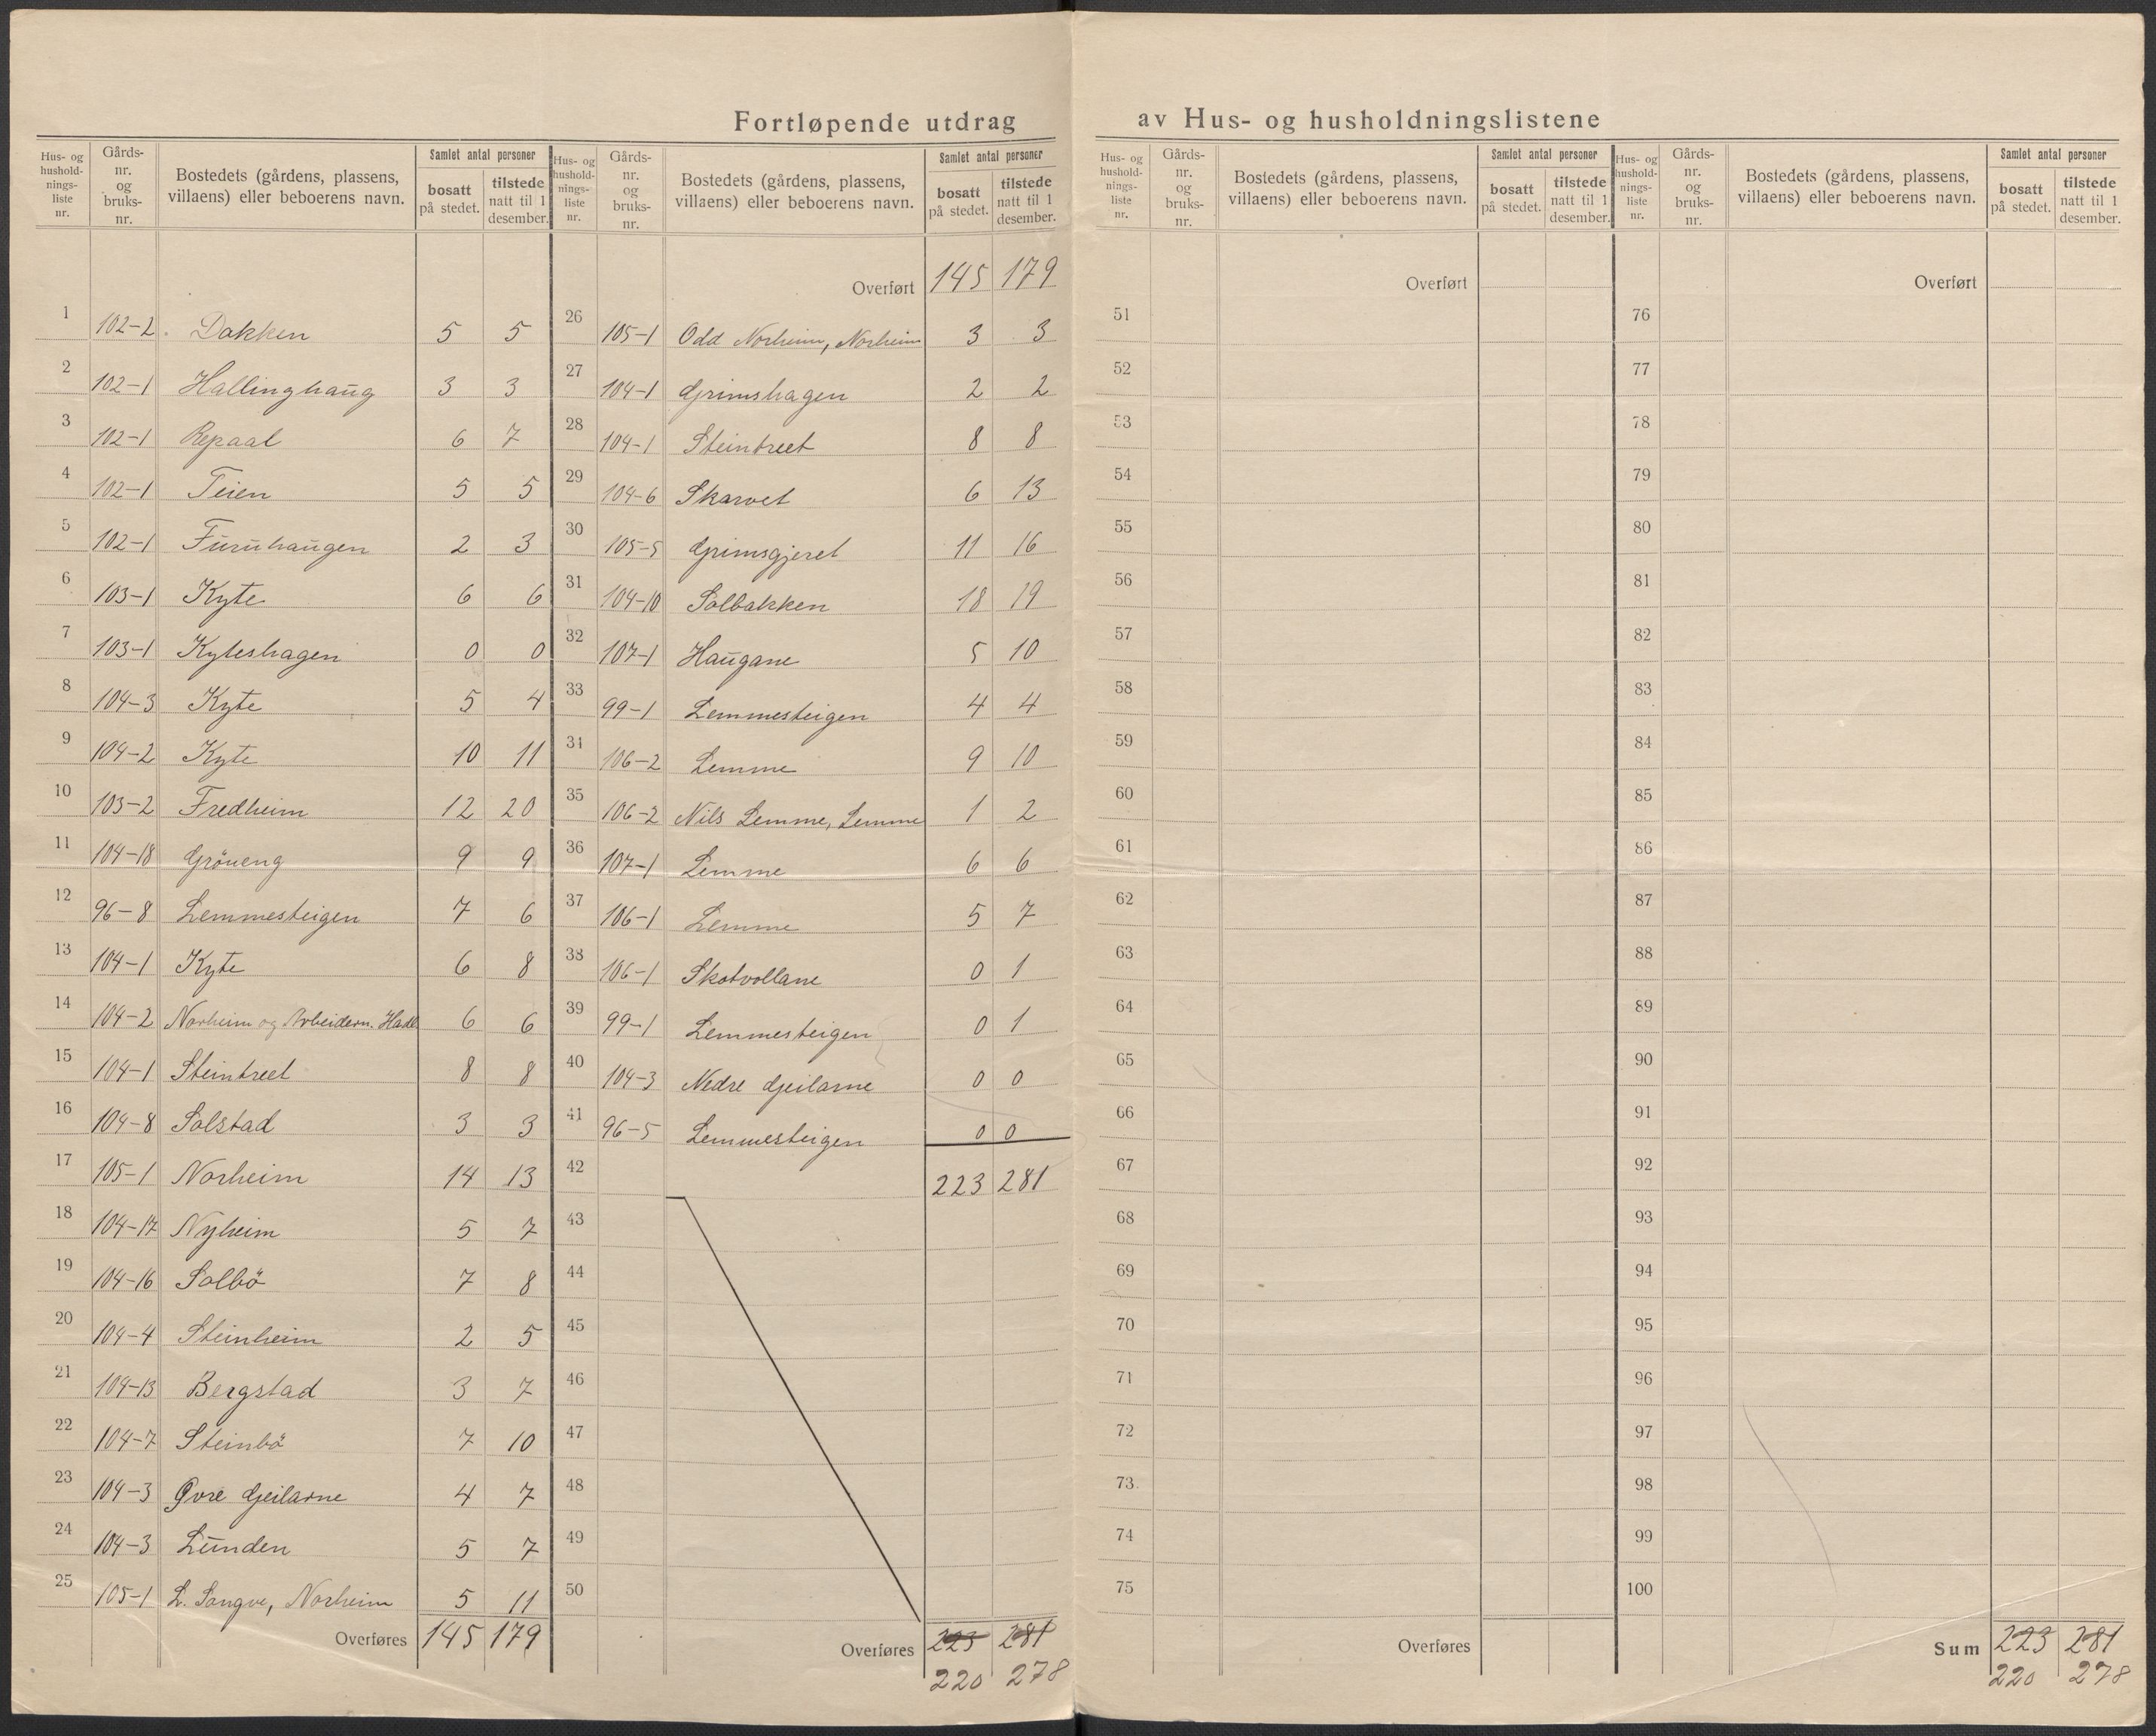 Fortløpende utdrag av Hus- og husholdningslistene
Hus- og husholdnings- liste nr. | Gårds- nr. og bruks- nr. | Bostedets (gårdens, plassens, villaens) eller beboerens navn. | Samlet antal personer | bosatt på stedet. | tilstede natt til 1 desember.
1 102-2 Dokken 5 5
2 102-1 Hallinghaug 3 3
3 102-1 Repaal 6 7
4 102-1 Teien 5 5
5 102-1 Furuhaugen 2 3
6 103-1 Kyte 6 6
7 103-1 Kyteshagen 0 0
8 104-3 Kyte 5 4
9 104-2 Kyte 10 11
10 103-2 Fredheim 12 20
11 104-18 Gröneng 9 9
12 96-8 Lemmesteigen 7 6
13 104-1 Kyte 6 8
14 104-2 Norheim og Arbeidern. 6 6
15 104-1 Steintreet 8 8
16 104-8 Solstad 3 3
17 105-1 Norheim 14 13
18 104-17 Nyheim 5 7
19 104-16 Solbö 7 8
20 104-4 Steinheim 2 5
21 104-13 Bergstad 3 7
22 104-7 Steinbö 7 10
23 104-3 Øvre Geilarne 4 7
24 104-3 Lunden 5 7
25 105-1 L. Songve, Norheim 5 11
Overføres 145 179
Hus- og husholdnings- liste nr. | Gårds- nr. og bruks- nr. | Bostedets (gårdens, plassens, villaens) eller beboerens navn. | Samlet antal personer | bosatt på stedet. | tilstede natt til 1 desember.
Overført 145 179
26 105-1 Odd Norheim, Norheim 3 3
27 104-1 Grimshagen 2 2
28 104-1 Steintreet 8 8
29 104-6 Skarvet 6 13
30 105-5 Grimsgjeret 11 16
31 104-10 Solbakken 18 19
32 107-1 Haugane 5 10
33 99-1 Lemmesteigen 4 4
34 106-2 Lemme 9 10
35 106-2 Nils Lemme, Lemme 1 2
36 107-1 Lemme 6 6
37 106-1 Lemme 5 7
38 106-1 Skotvollane 0 1
39 99-1 Lemmesteigen 0 1
40 104-3 Nedre Geilarne 0 0
41 96-5 Lemmesteigen 0 0
42 223 281
43
44
45
46
47
48
49
50
Overføres 223 281
220 278
Hus- og husholdnings- liste nr. | Gårds- nr. og bruks- nr. | Bostedets (gårdens, plassens, villaens) eller beboerens navn. | Samlet antal personer | bosatt på stedet. | tilstede natt til 1 desember.
Overført
51
52
53
54
55
56
57
58
59
60
61
62
63
64
65
66
67
68
69
70
71
72
73
74
75
Overføres
Hus- og husholdnings- liste nr. | Gårds- nr. og bruks- nr. | Bostedets (gårdens, plassens, villaens) eller beboerens navn. | Samlet antal personer | bosatt på stedet. | tilstede natt til 1 desember.
Overført
76
77
78
79
80
81
82
83
84
85
86
87
88
89
90
91
92
93
94
95
96
97
98
99
100
Sum 223 281
220 278